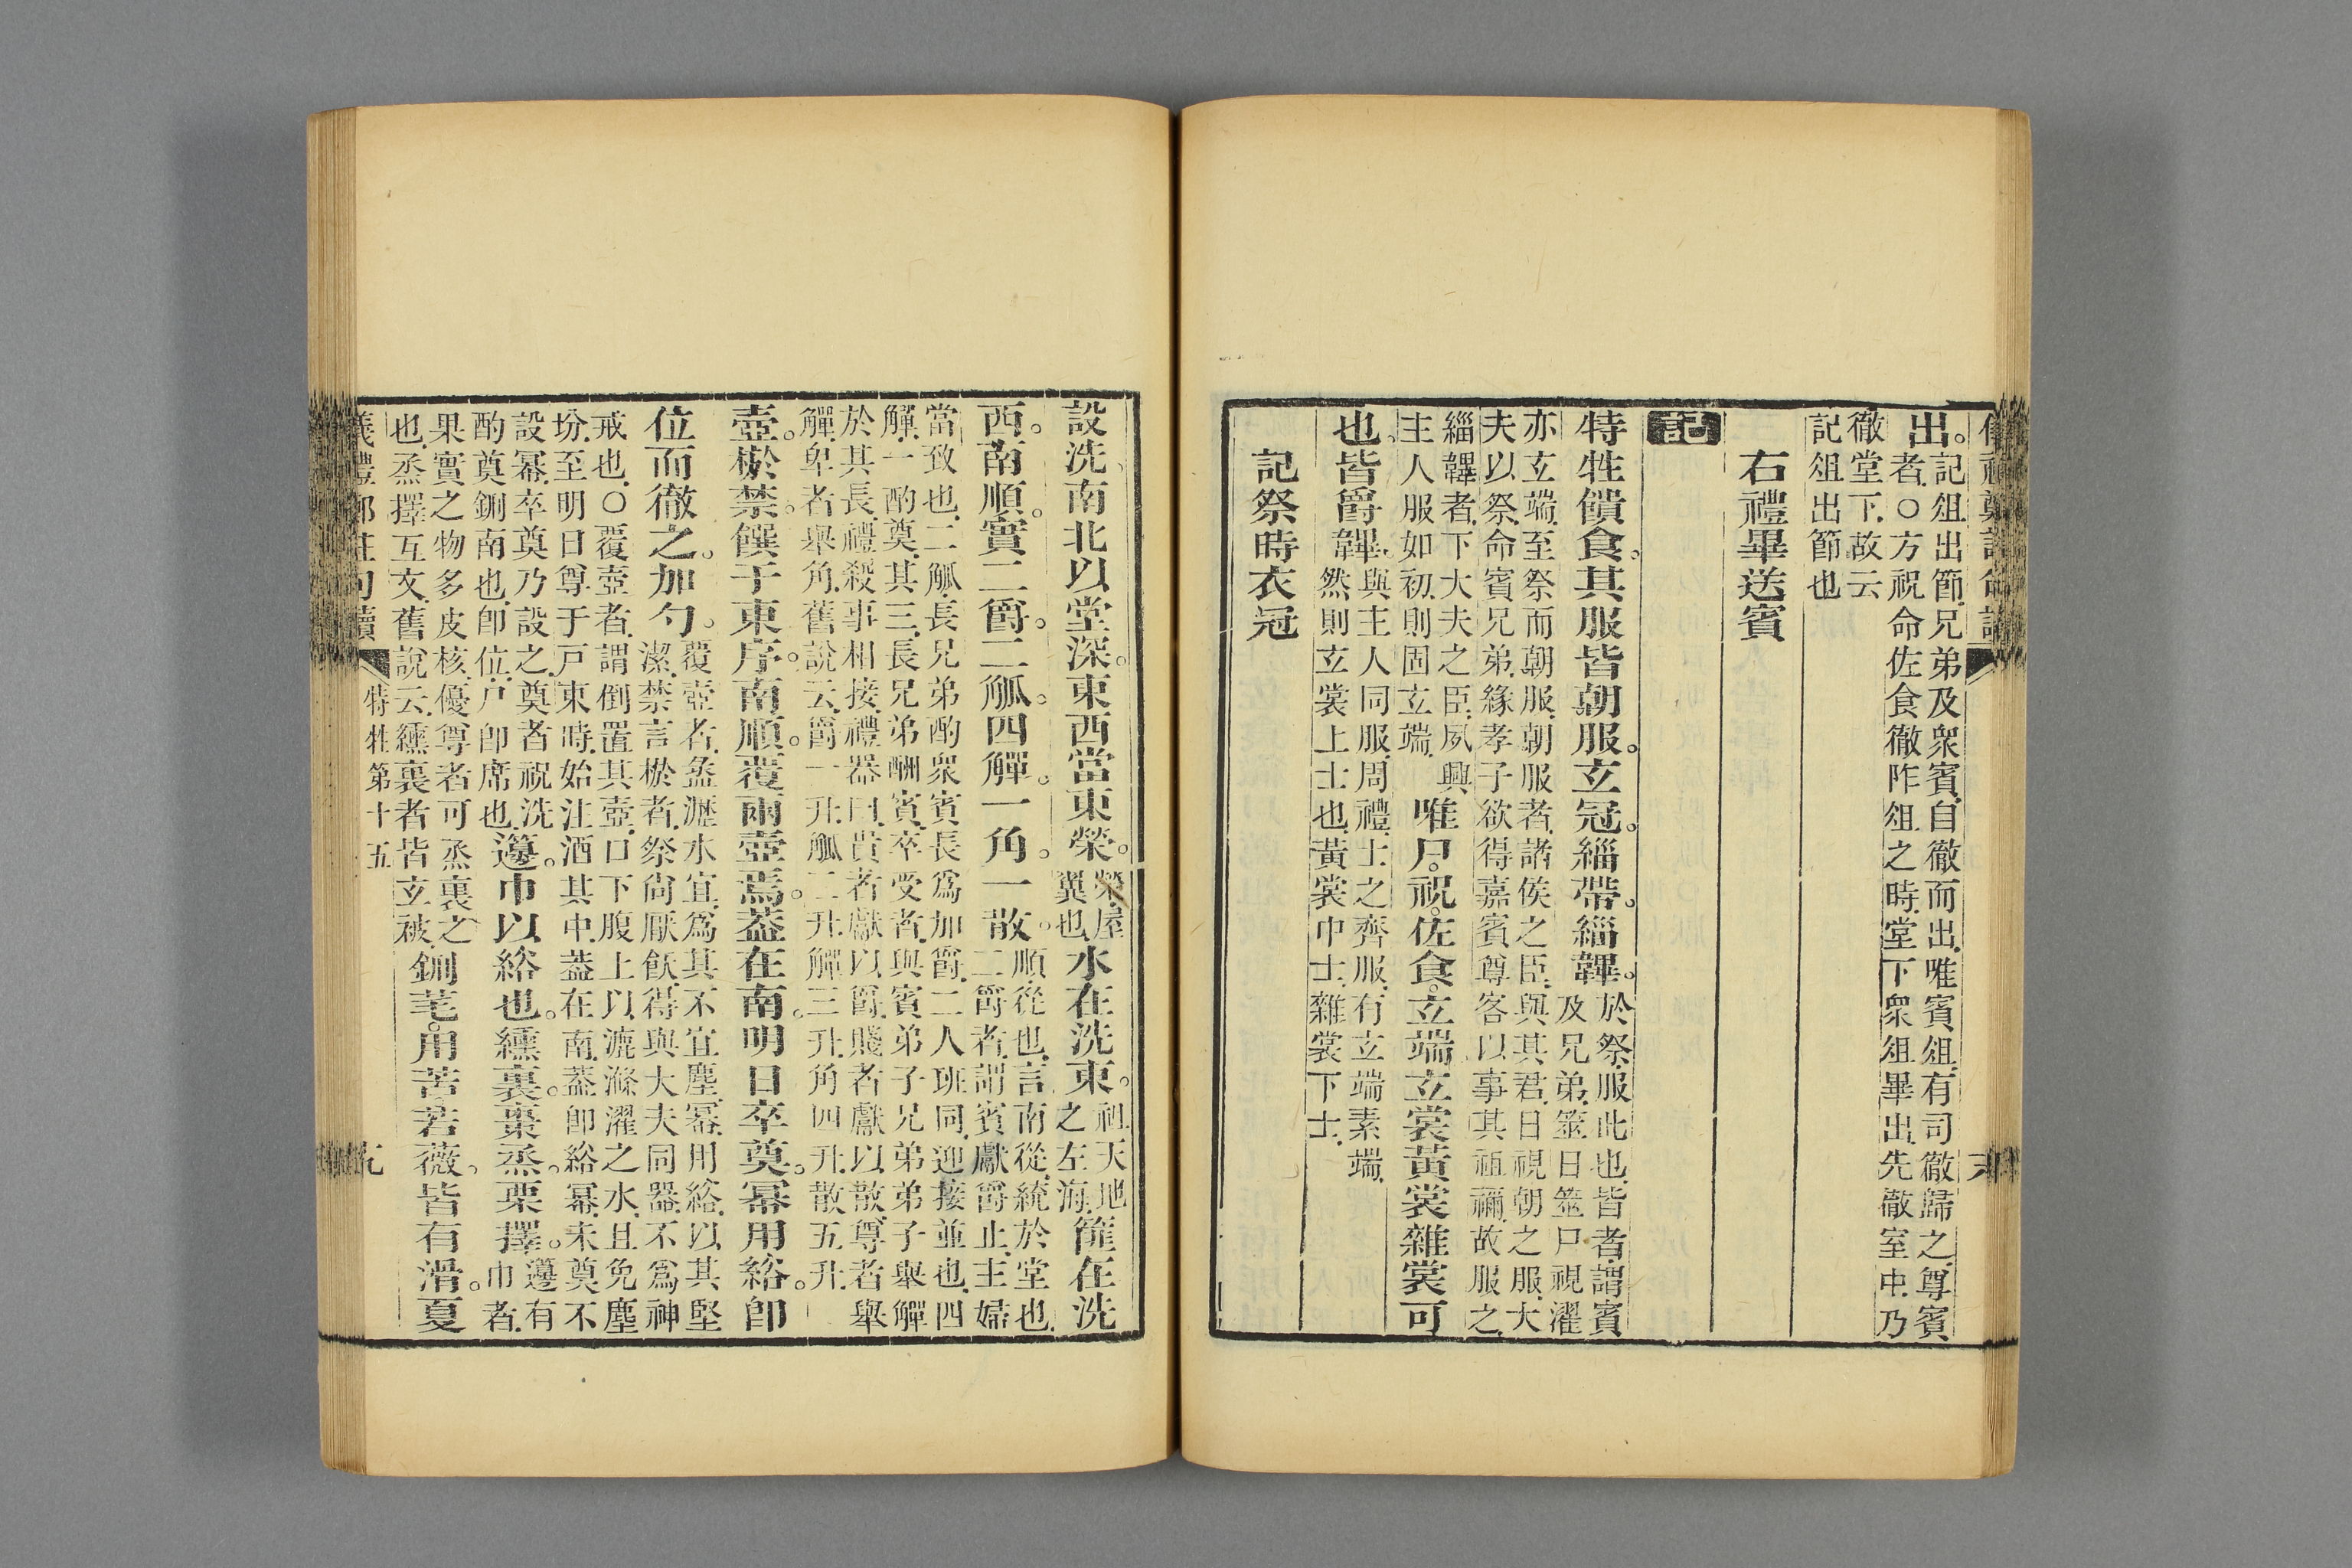 出。記俎出節兄弟及衆賓自徹而出唯賓俎有司徹歸之尊賓
者○方祝命佐食徹阼俎之時堂下衆俎畢出先徹室中乃
徹堂下故云
記俎出節也
右禮畢送賓
記
特牲饋食。其服皆朝服。玄冠。緇帶。緇韠。於祭服此也皆者謂賓
及兄弟筮日筮尸視濯
亦玄端至祭而朝服朝服者諸侯之臣與其君日視朝之服大
夫以祭命賓兄弟緣孝子欲得嘉賓尊客以事其祖禰故服之
緇韠者下大夫之臣夙興
主人服如初則固玄端
唯尸。祝。佐食。玄端玄裳黃裳雜裳可
也。皆爵韠。與主人同服周禮士之齊服有玄端素端
然則玄裳上士也黃裳中士雜裳下士
記祭時衣冠
設洗南北以堂深。東西當東榮。榮屋
翼也
水在洗東。祖天地
之左海
篚在洗
西。南順。實二爵。二觚。四觶。一角。一散。順從也言南從統於堂也
二爵者謂賓獻爵止主婦
當致也二觚長兄弟酌衆賓長爲加爵二人班同迎接並也四
觶一酌奠其三長兄弟酬賓卒受者與賓弟子兄弟弟子舉觶
於其長禮殺事相接禮器曰貴者獻以爵賤者獻以散尊者舉
觶卑者舉角舊說云爵一升觚二升觶三升角四升散五升
壺。棜禁。饌于東序。南順。覆兩壺焉。蓋在南。明日卒奠。幂用綌。卽
位而徹之。加勺。覆壺者盝瀝水宜爲其不宜塵幂用綌以其堅
潔禁言棜者祭尙厭飫得與大夫同器不爲神
戒也○覆壺者謂倒置其壺口下腹上以漉滌濯之水且免塵
坋至明日尊于戸東時始注酒其中蓋在南蓋卽綌幂未奠不
設幂卒奠乃設之奠者祝洗
酌奠鉶南也卽位尸卽席也
籩。巾以綌也。纁裏。棗烝。栗擇。籩有
巾者
果實之物多皮核優尊者可烝裹之
也烝擇互文舊說云纁裏者皆玄被
鉶芼。用苦若薇。皆有滑。夏
特牲第十五